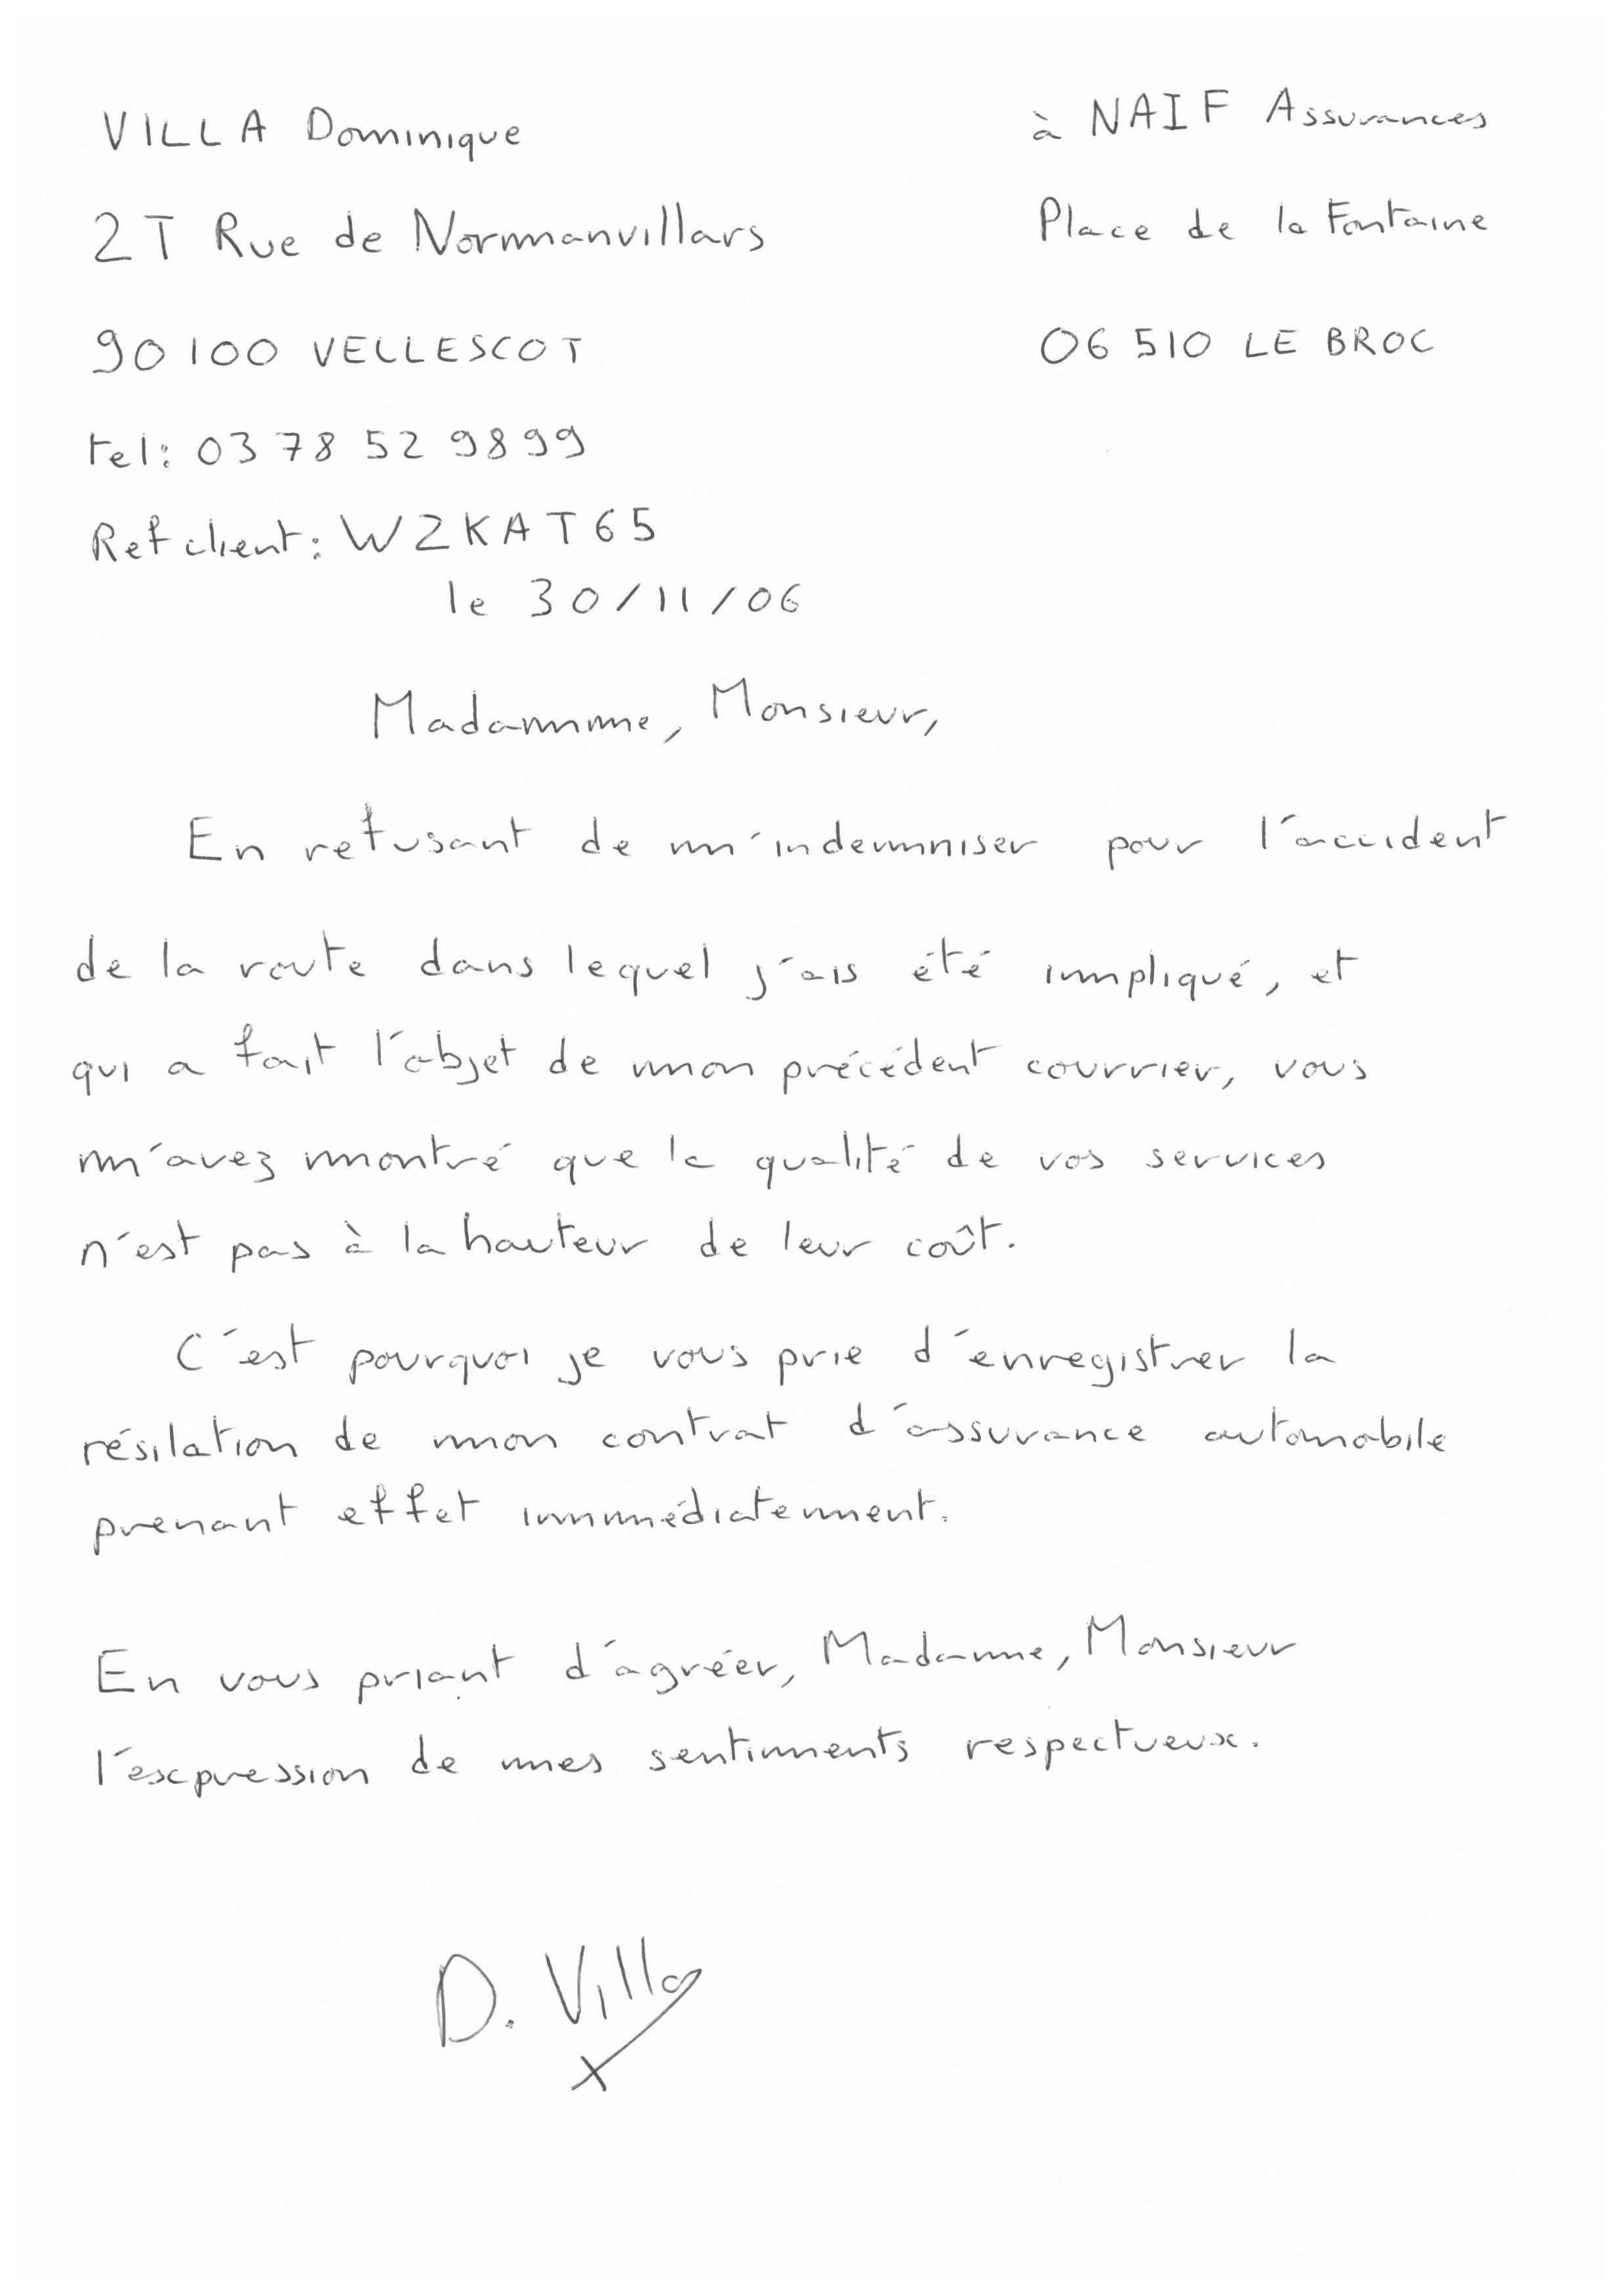 VILLA Dominique
2T Rue de Normanvillars
90100 VELLESCOT
tel: 03 78 52 98 99
Ref client: WZKAT65
à NAIF Assurances
Place de la Fontaine
06 510 LE BROC
le 30/11/06
Madame, Monsieur,
En refusant de m'indemniser pour l'accident
de la route dans lequel j'ais été impliqué, et
qui a fait l'objet de mon précédent courrier, vous
m'avez montré que la qualité de vos services
n'est pas à la hauteur de leur coût.
C'est pourquoi je vous prie d'enregistrer la
résilation de mon contrat d'assurance automobile
prenant effet immédiatement.
En vous priant d'agréer, Madame, Monsieur
l'expression de mes sentiments respectueux.
D. Villa